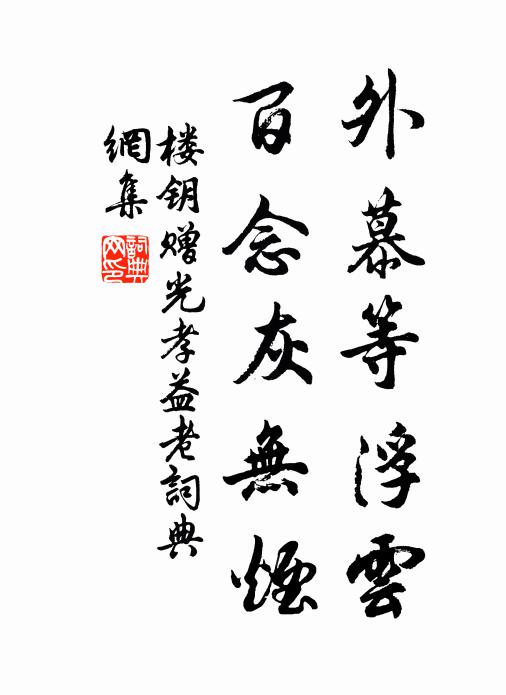 外慕等浮雲
百念灰無煙
楼钥赠光孝益老詞典
網集
詞典
网印